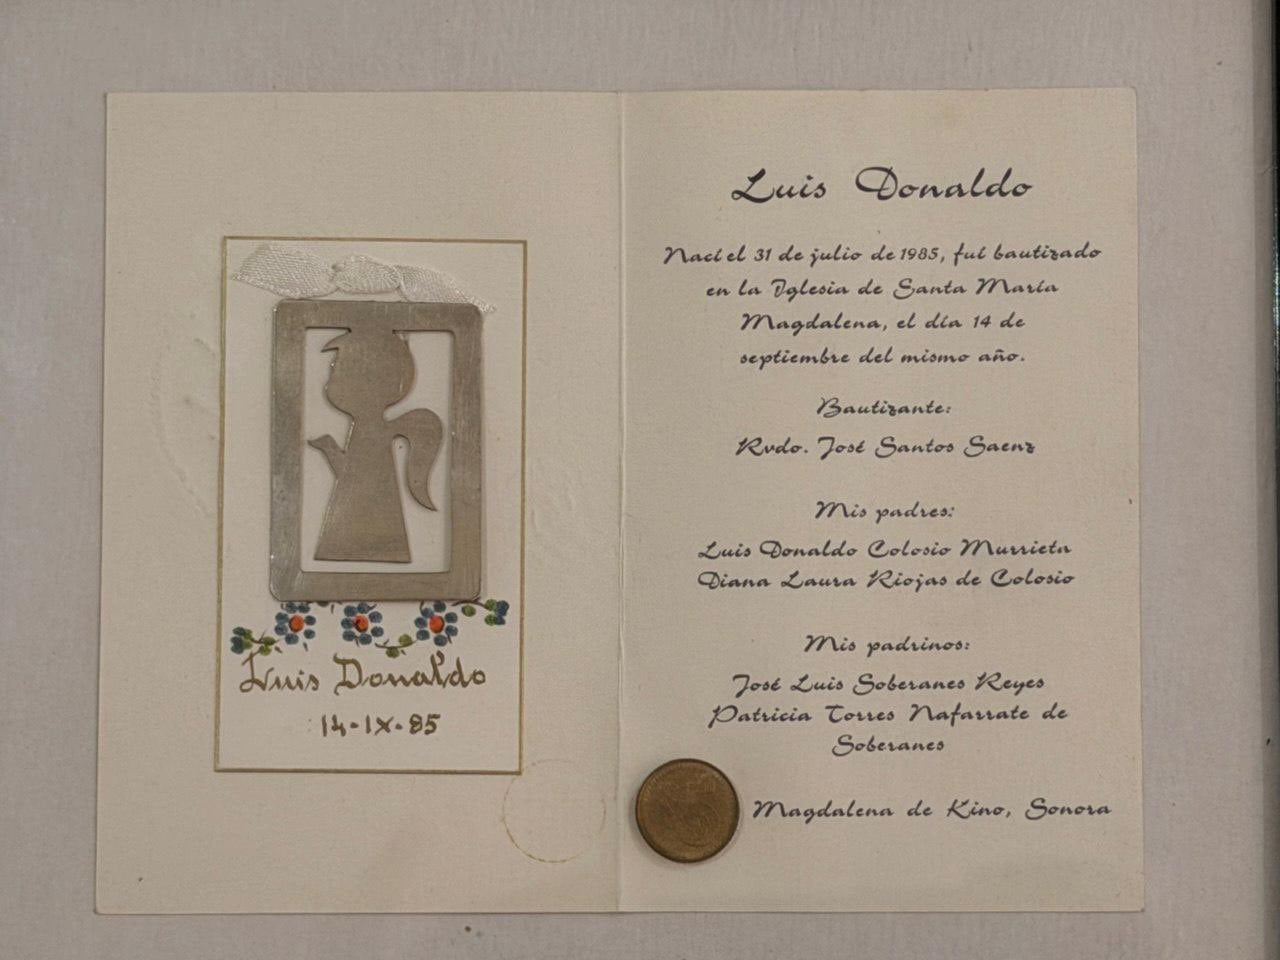 Luis Donaldo
14-IX-85
Luis Donaldo
Nací el 31 de julio de 1985, fuí bautizado
en la Iglesia de Santa María
Magdalena, el día 14 de
septiembre del mismo año.
Bautizante:
Rvdo. José Santos Saenz
Mis padres:
Luis Donaldo Colosio Murrieta
Diana Laura Riojas de Colosio
Mis padrinos:
José Luis Soberanes Reyes
Patricia Torres Nafarrate de
Soberanes
Magdalena de Kino, Sonora